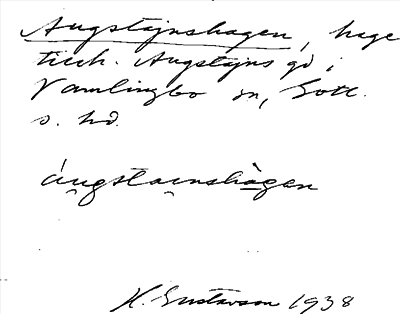 Augstäjnshagen, hage
tillh. Augstäjns gd i
Vamlingbo sn, Gotl.
s. hd.
áu̯gstai̯nshàgen
H. Gustavson 1938